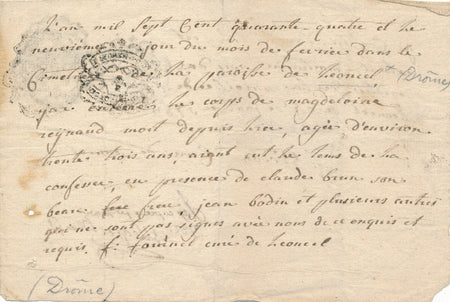 L'an mil Sept Cent quarante quatre et le
neuvieme jour du mois de fevrier dans le
Cimetiere de la paroisse de Leoncel (Drôme)
j'ai enterré le corps de magdeleine
reynaud mort depuis hier, agée d'environ
trente trois ans aiant eut le tems de ha
confesser, en presence de claude brun son
beau frere, jean bodin et plusieurs autres
qui ne sont pas signes avec nous de ce enquis et
requis. f: curé de leoncel
(Drôme)